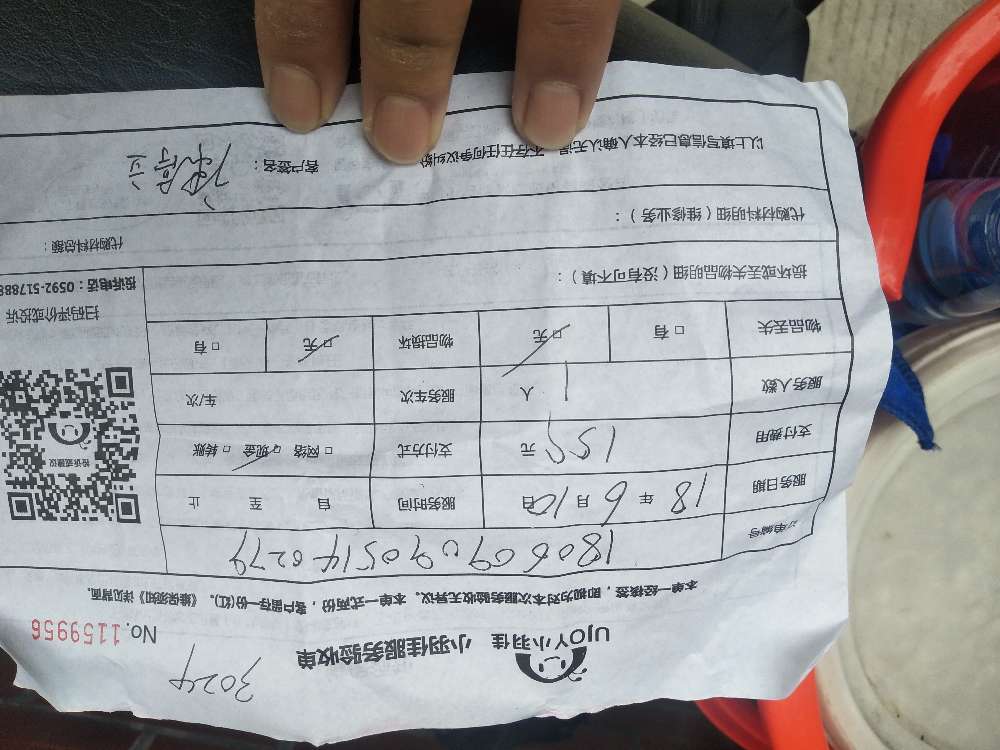 3024
UJOY小羽佳 小羽佳服务验收单 No.1159956
本单一经核签，即视为对本次服务验收无异议。本单一式两份，客户留存一份(红)。《维保须知》详见背面。
订单编号
服务日期 18 年 6 月 10 日 服务时间 自 至 止
支付费用 155 元 支付方式 □ 网络 □ 现金 □ 转账
服务人数 1 人 服务车次 车/次
物品丢失 □ 有 □ 无 物品损坏 □ 无 □ 有
投诉或建议
扫码评价或投诉
投诉电话：0592-517888
损坏或丢失物品明细（没有可不填）：
代购材料明细（维修业务）： 代购材料总额：
以上填写信息已经本人确认无误，不存在任何争议纠纷 客户签名：